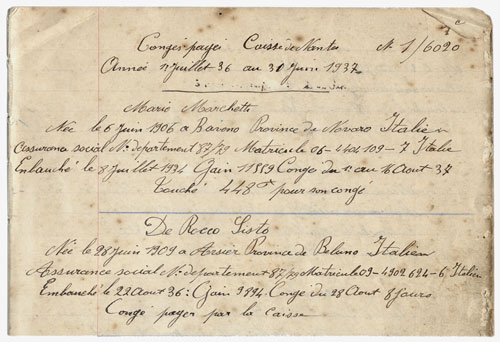 Congés payés Caisse de Nantes N 1/6020
Année 1r Juillet 36 au 31 Juin 1937
Mario Marchetti
Née le 6 Juin 1906 a Baveno Province de Novaro Italien
Assurance social No departement 87/79 Matricule 06-4404109-7 Italie
Enbauché le 8 Juillet 1934 Gain 11559 Conge du 1r au 16 Aout 37
Touché 448 pour son congé
De Rocco Sisto
Née le 28 Juin 1909 a Arsier Province de Beluno Italien
Assurance social No departement 87/79 Matricule 09-4902624-6 Italien
Embauché le 22 Aout 36: Gain 9894 Conge du 28 Aout 8 Jours
Conge payer par la caisse